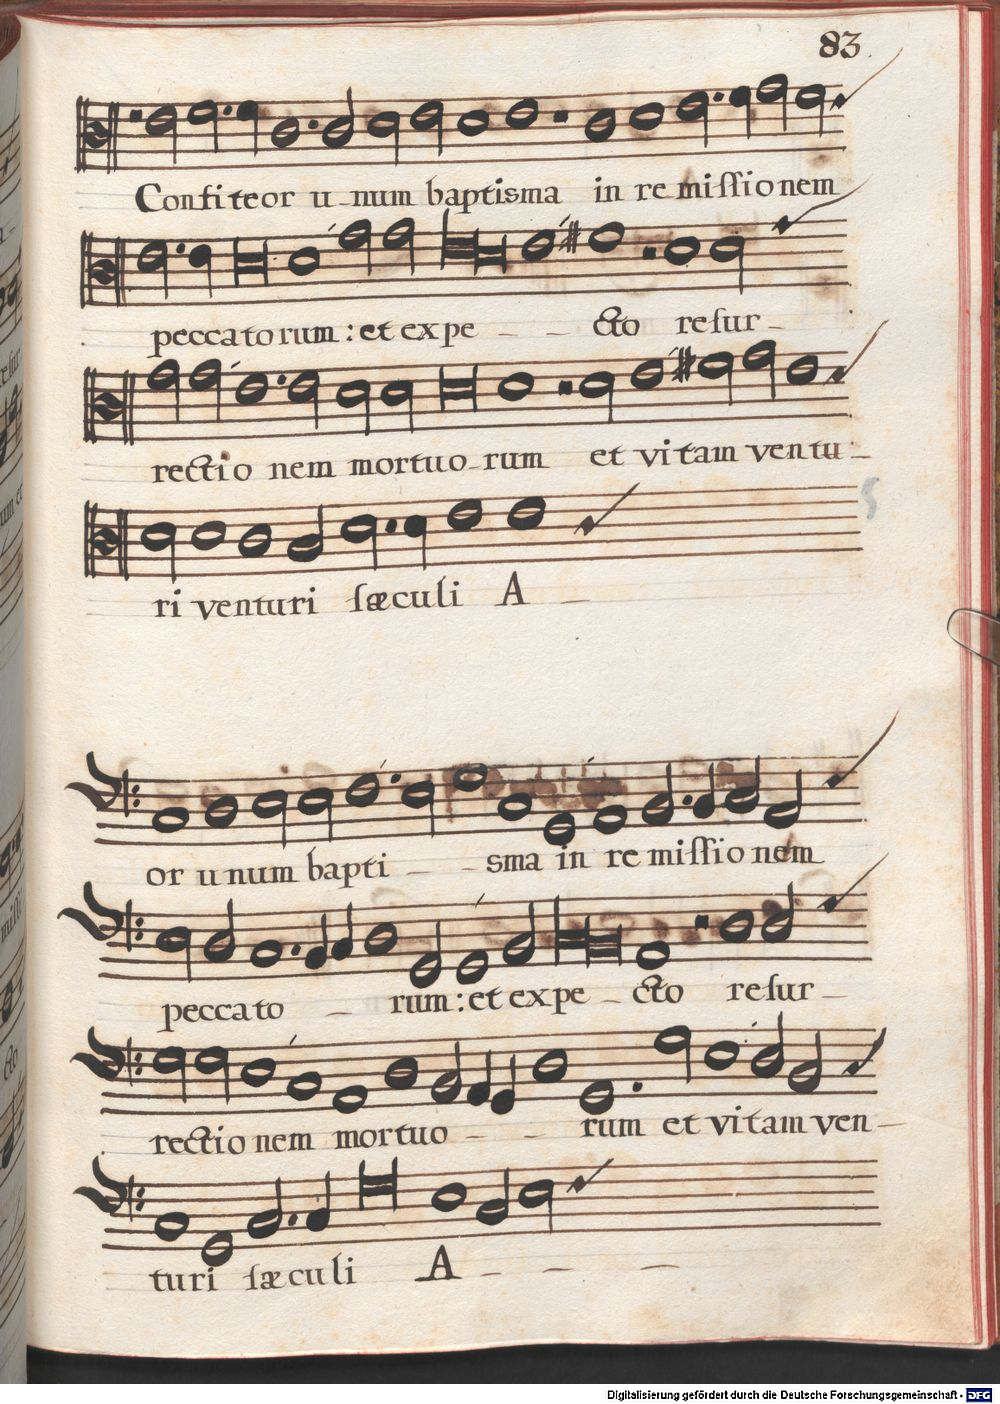 83.
Confiteor u-num baptisma in remiſſionem
peccatorum: et expe - - cto reſur-
rectio nem mortuo-rum et vitam ventu-
ri venturi ſæculi A -
or unum bapti - - sma in remiſſionem
peccato - rum: et expe - cto reſur -
rectionem mortuo - - rum et vitam ven-
turi ſæculi A - - - -
Digitalisierung gefördert durch die Deutsche Forschungsgemeinschaft - DFG